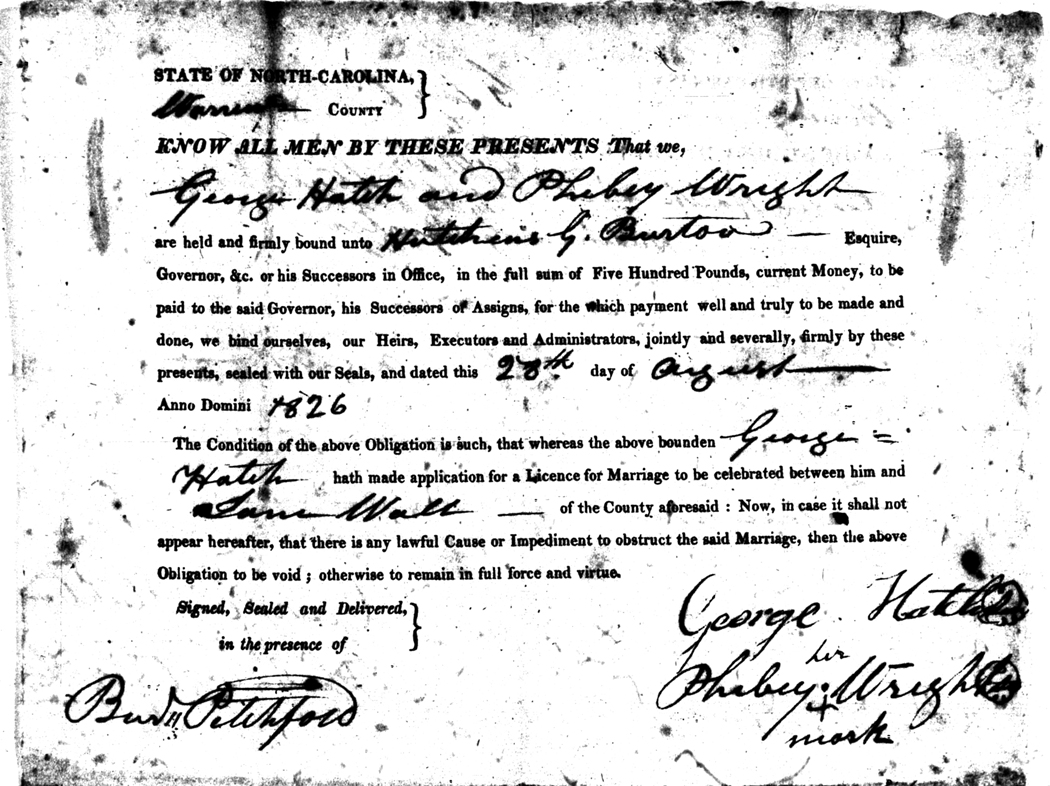 STATE OF NORTH-CAROLINA,
Warren COUNTY
KNOW ALL MEN BY THESE PRESENTS That we,
George Hatch and Phebey Wright
are held and firmly bound unto Hutchens G. Burton Esquire,
Governor, &c. or his Successors in Office, in the full sum of Five Hundred Pounds, current Money, to be
paid to the said Governor, his Successors or Assigns, for the which payment well and truly to be made and
done, we bind ourselves, our Heirs, Executors and Administrators, jointly and severally, firmly by these
presents, sealed with our Seals, and dated this 28th day of August
Anno Domini 1826
The Condition of the above Obligation is such, that whereas the above bounden George =
Hatch hath made application for a Licence for Marriage to be celebrated between him and
Wall of the County aforesaid : Now, in case it shall not
appear hereafter, that there is any lawful Cause or Impediment to obstruct the said Marriage, then the above
Obligation to be void ; otherwise to remain in full force and virtue.
Signed, Sealed and Delivered,
in the presence of
George Hatch
her
Phebey + Wright
mark
Pitchford